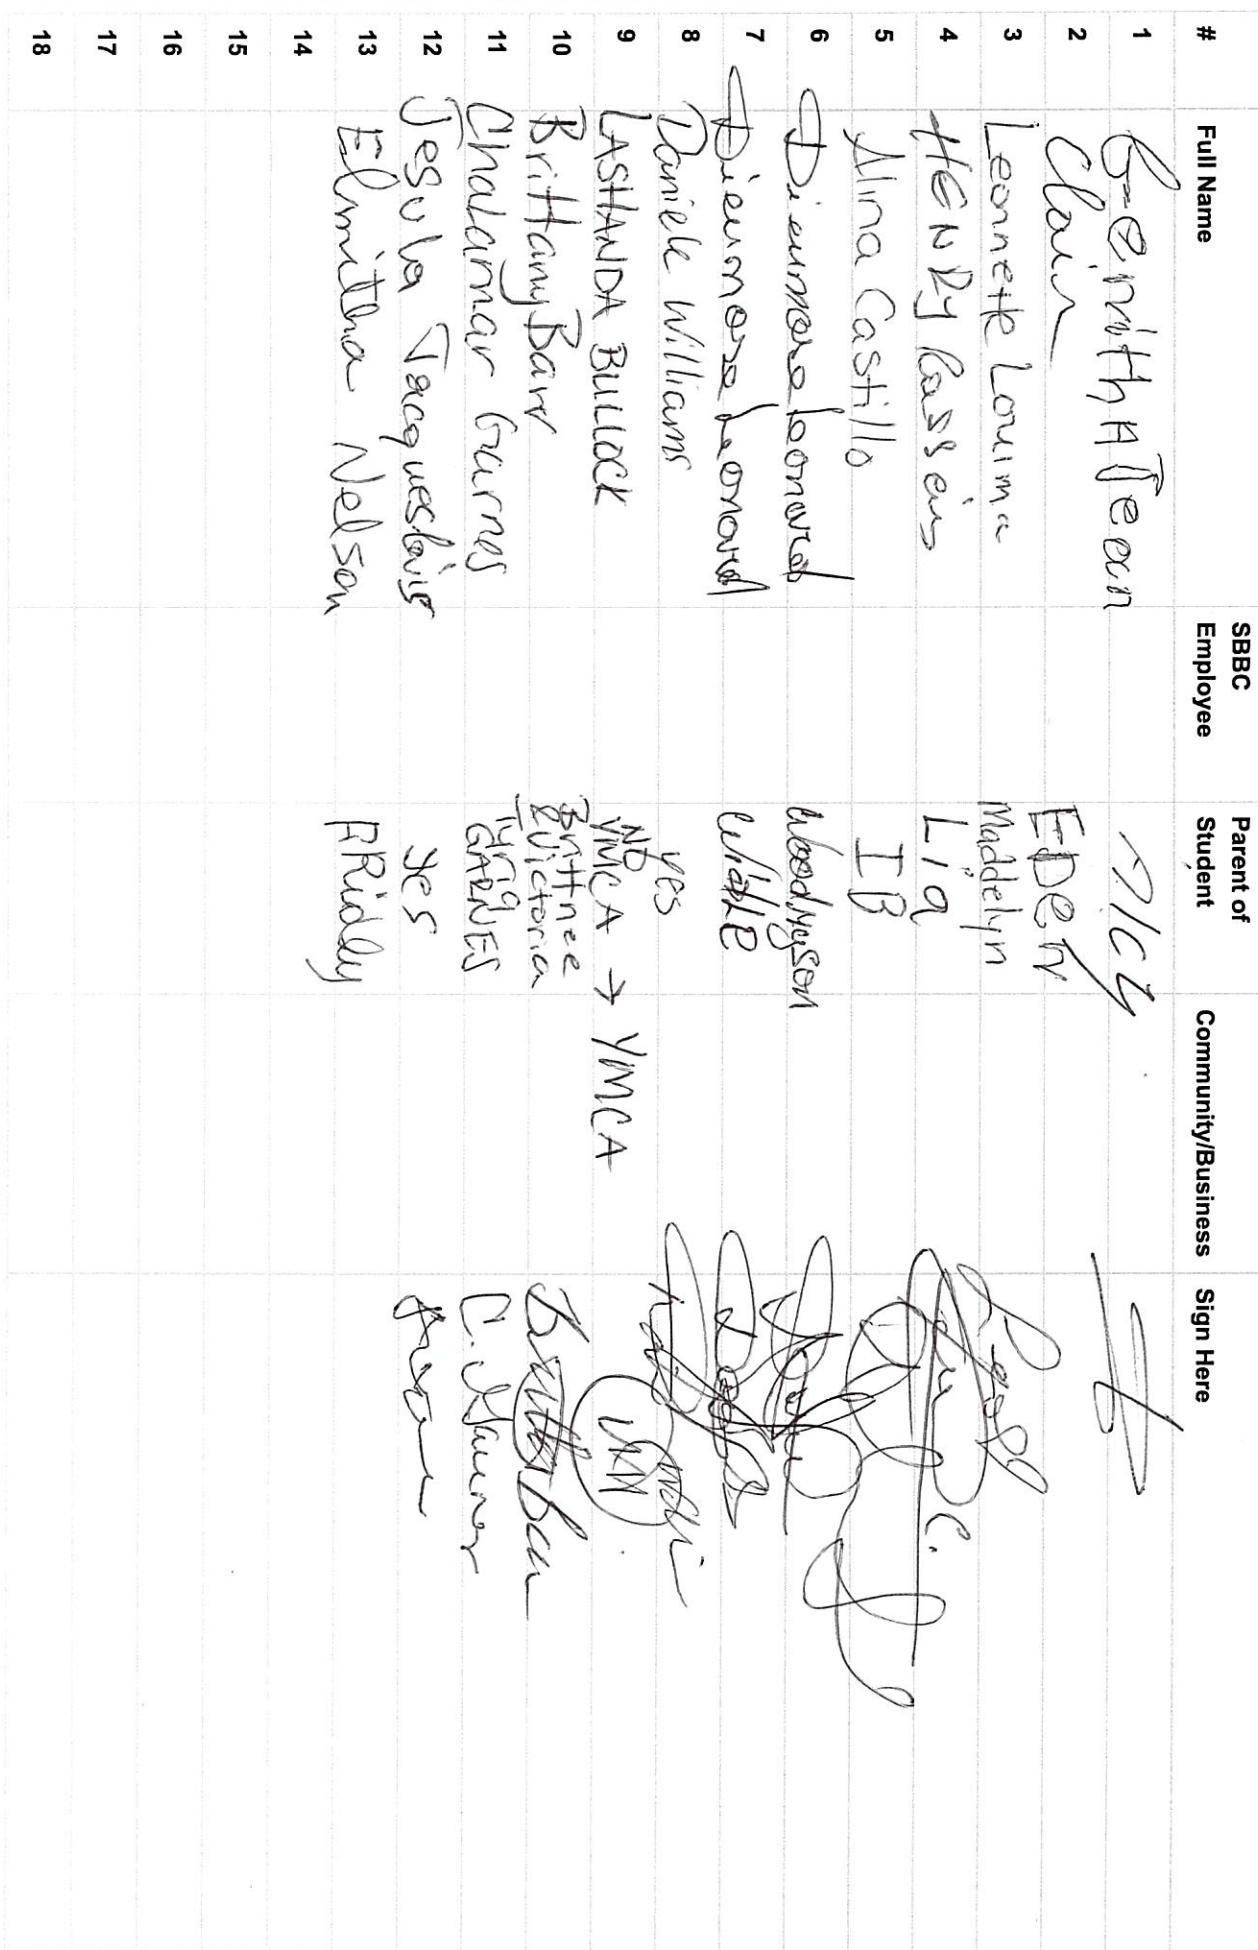 # Full Name SBBC Employee Parent of Student Community/Business Sign Here
1 Gerinith A Jean
2 Clair EDEN
3 Leonnette Louima Maddelyn
4 HENRY Cassein Lia
5 Alina Castillo IB
6 Dieumose Leonard Woodyyson
7 Dieumose Leonard
8 Daniele Williams yes
9 LASHANDA BULLOCK NO YMCA → YMCA
10 Brittany Barr Brittnee & Victoria
11 Chalamar Garnes GARNES C. Garnes
12 Jesula Jacqueslouis yes
13 Elmitha Nelson ARidley
14
15
16
17
18